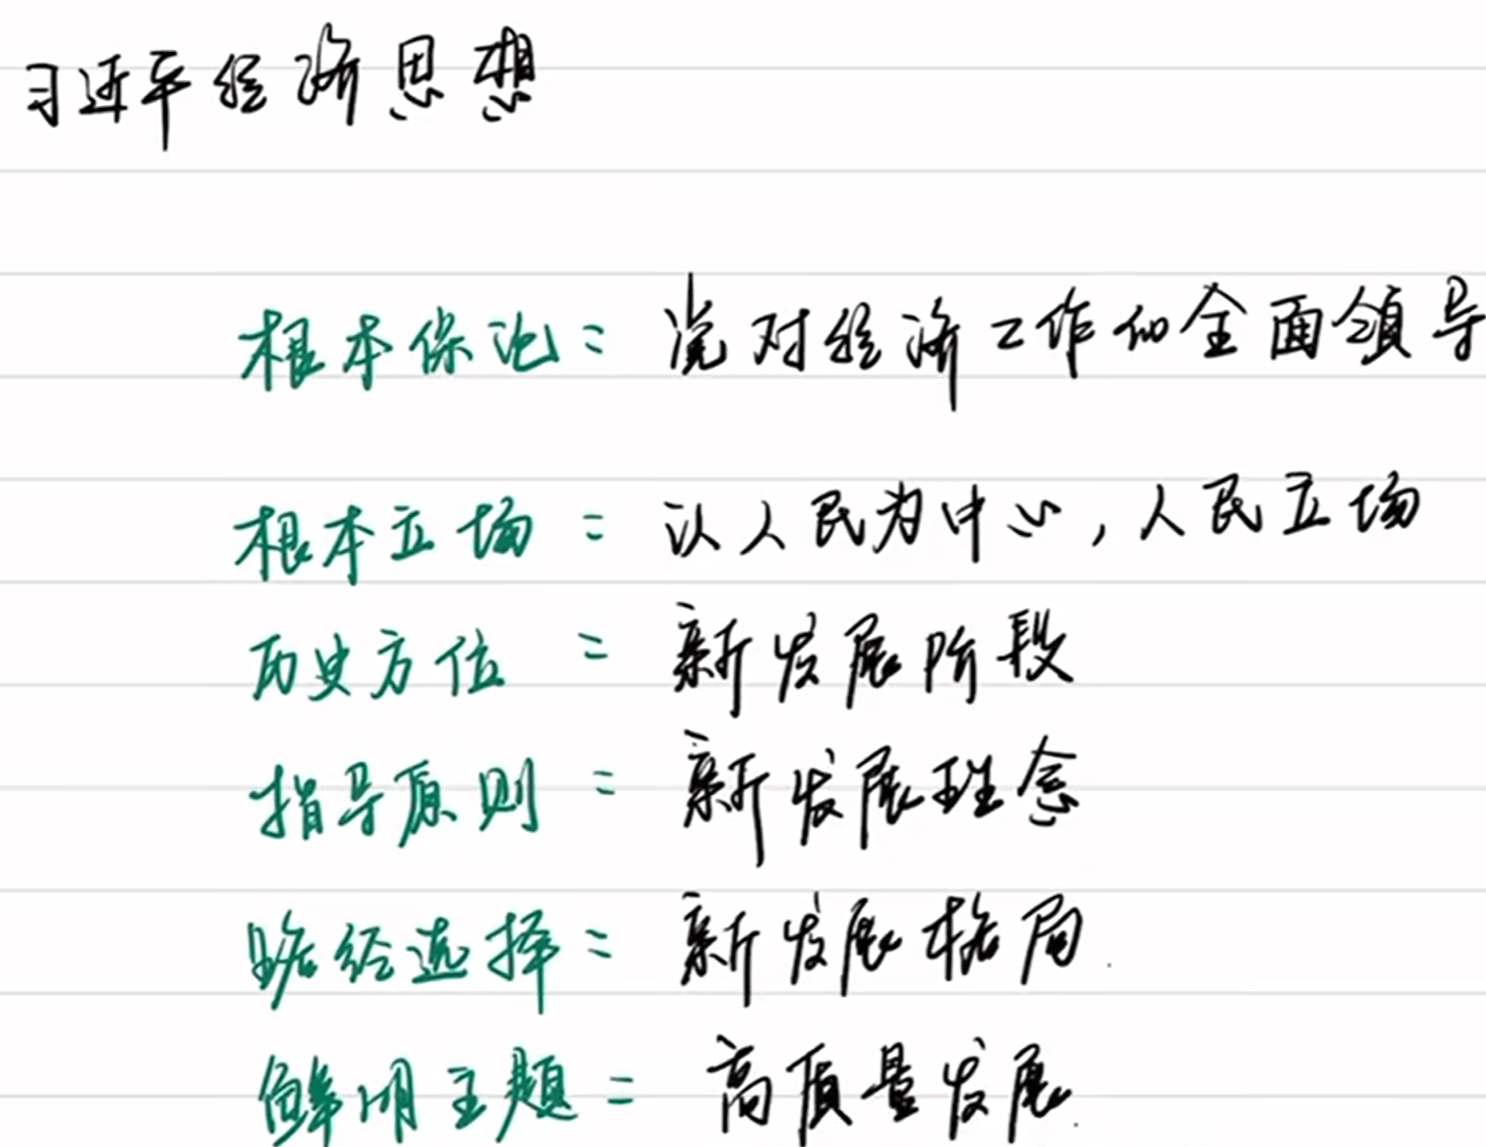 习近平经济思想
根本保证=党对经济工作的全面领导
根本立场=以人民为中心,人民立场
历史方位=新发展阶段
指导原则=新发展理念
路径选择=新发展格局
鲜明主题=高质量发展